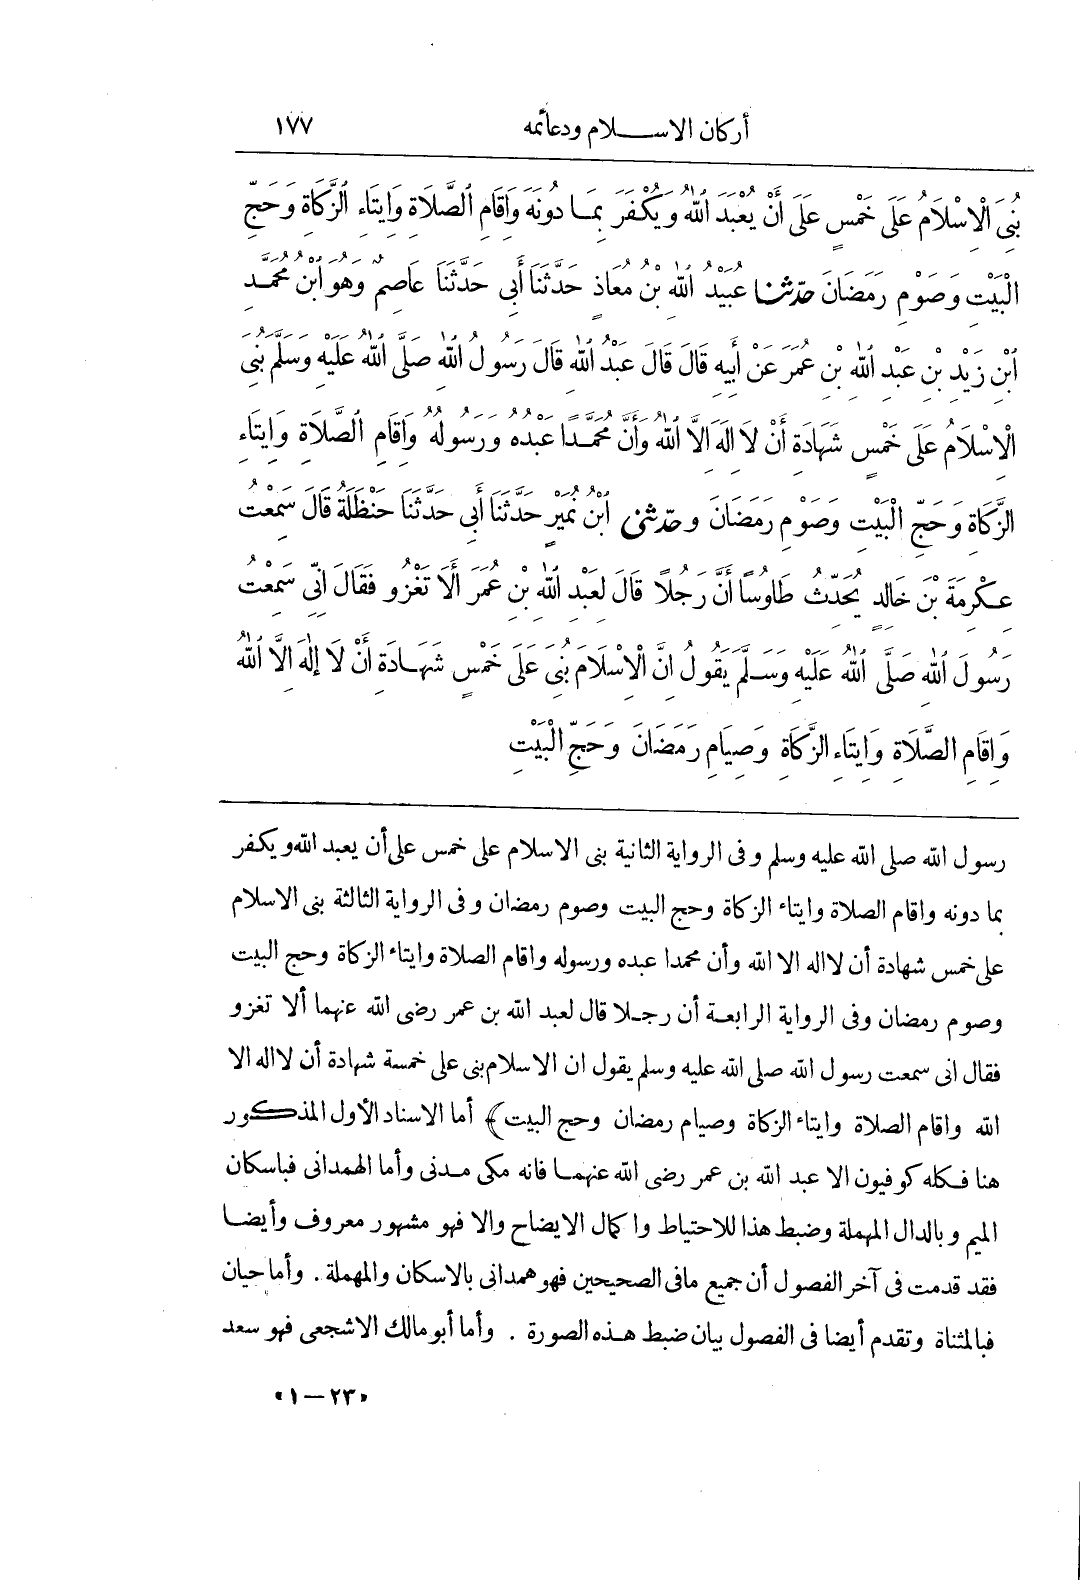 أركان الاسـلام ودعائمه ١٧٧
بُنِىَ الْاِسْلَامُ عَلَى خَمْسٍ عَلَى أَنْ يُعْبَدَ اللهُ وَيُكْفَرَ بِمَا دُونَهُ وَاِقَامِ الصَّلَاةِ وَاِيتَاءِ الزَّكَاةِ وَحَجِّ
الْبَيْتِ وَصَوْمِ رَمَضَانَ حدثنا عُبَيْدُ اللهِ بْنُ مُعَاذٍ حَدَّثَنَا أَبِى حَدَّثَنَا عَاصِمٌ وَهُوَ ابْنُ مُحَمَّدِ
ابْنِ زَيْدِ بْنِ عَبْدِ اللهِ بْنِ عُمَرَ عَنْ أَبِيهِ قَالَ قَالَ عَبْدُ اللهِ قَالَ رَسُولُ اللهِ صَلَّى اللهُ عَلَيْهِ وَسَلَّمَ بُنِىَ
الْاِسْلَامُ عَلَى خَمْسٍ شَهَادَةِ أَنْ لَا اِلَهَ اِلَّا اللهُ وَأَنَّ مُحَمَّدًا عَبْدُهُ وَرَسُولُهُ وَاِقَامِ الصَّلَاةِ وَاِيتَاءِ
الزَّكَاةِ وَحَجِّ الْبَيْتِ وَصَوْمِ رَمَضَانَ وحدثنى ابْنُ نُمَيْرٍ حَدَّثَنَا أَبِى حَدَّثَنَا حَنْظَلَةُ قَالَ سَمِعْتُ
عِكْرِمَةَ بْنَ خَالِدٍ يُحَدِّثُ طَاوُسًا أَنَّ رَجُلًا قَالَ لِعَبْدِ اللهِ بْنِ عُمَرَ أَلَا تَغْزُو فَقَالَ اِنِّى سَمِعْتُ
رَسُولَ اللهِ صَلَّى اللهُ عَلَيْهِ وَسَلَّمَ يَقُولُ اِنَّ الْاِسْلَامَ بُنِىَ عَلَى خَمْسٍ شَهَادَةِ أَنْ لَا إِلٰهَ اِلَّا اللهُ
وَاِقَامِ الصَّلَاةِ وَاِيتَاءِ الزَّكَاةِ وَصِيَامِ رَمَضَانَ وَحَجِّ الْبَيْتِ
رسول الله صلى الله عليه وسلم وفى الرواية الثانية بنى الاسلام على خمس على أن يعبد الله ويكفر
بما دونه واقام الصلاة وايتاء الزكاة وحج البيت وصوم رمضان وفى الرواية الثالثة بنى الاسلام
على خمس شهادة أن لا اله الا الله وأن محمدا عبده ورسوله واقام الصلاة وايتاء الزكاة وحج البيت
وصوم رمضان وفى الرواية الرابعـة أن رجـلا قال لعبد الله بن عمر رضى الله عنهما ألا تغزو
فقال انى سمعت رسول الله صلى الله عليه وسلم يقول ان الاسلام بنى على خمسة شهادة أن لا اله الا
الله واقام الصلاة وايتاء الزكاة وصيام رمضان وحج البيت﴾ أما الاسناد الأول المذكـور
هنا فـكله كوفيون الا عبد الله بن عمر رضى الله عنهمـا فانه مكى مـدنى وأما الهمدانى فباسكان
الميم وبالدال المهملة وضبط هذا للاحتياط واكمال الايضاح والا فهو مشهور معروف وأيضـا
فقد قدمت فى آخر الفصول أن جميع مافى الصحيحين فهو همدانى بالاسكان والمهملة . وأما حيان
فبالمثناة وتقدم أيضا فى الفصول بيان ضبط هـذه الصورة . وأما أبو مالك الاشجعى فهو سعد
«٢٣ — ١»